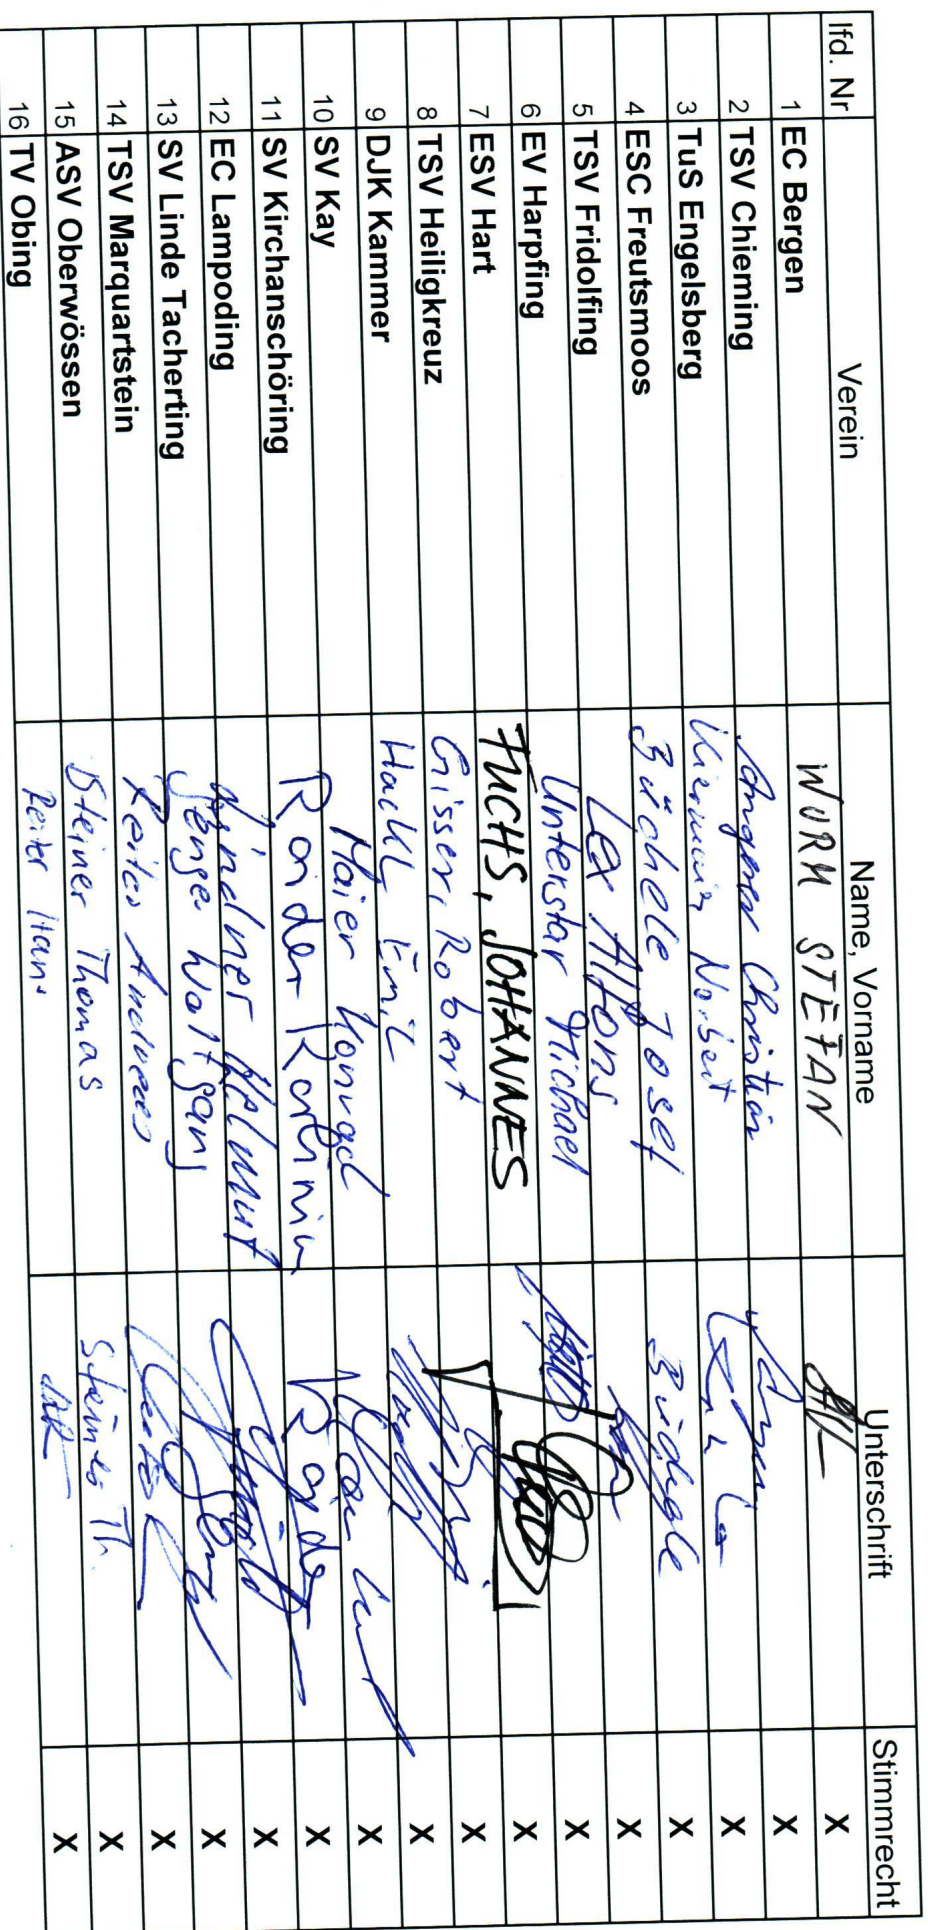 lfd. Nr Verein Name, Vorname Unterschrift Stimmrecht
1 EC Bergen WORM STEFAN X
2 TSV Chieming Christian X
3 TuS Engelsberg Norbert X
4 ESC Freutsmoos Büchele Josef Büchele X
5 TSV Fridolfing Lex Alfons X
6 EV Harpfing Unterstar Michael X
7 ESV Hart FUCHS, JOHANNES X
8 TSV Heiligkreuz Gisser, Robert X
9 DJK Kammer Hackl Emil X
10 SV Kay Maier Konrad X
11 SV Kirchanschöring Roider Roider X
12 EC Lampoding Lindner Helmut X
13 SV Linde Tacherting Wolfgang X
14 TSV Marquartstein Reiter Andreas X
15 ASV Oberwössen Steiner Thomas Steiner Th. X
16 TV Obing Reiter Hans X